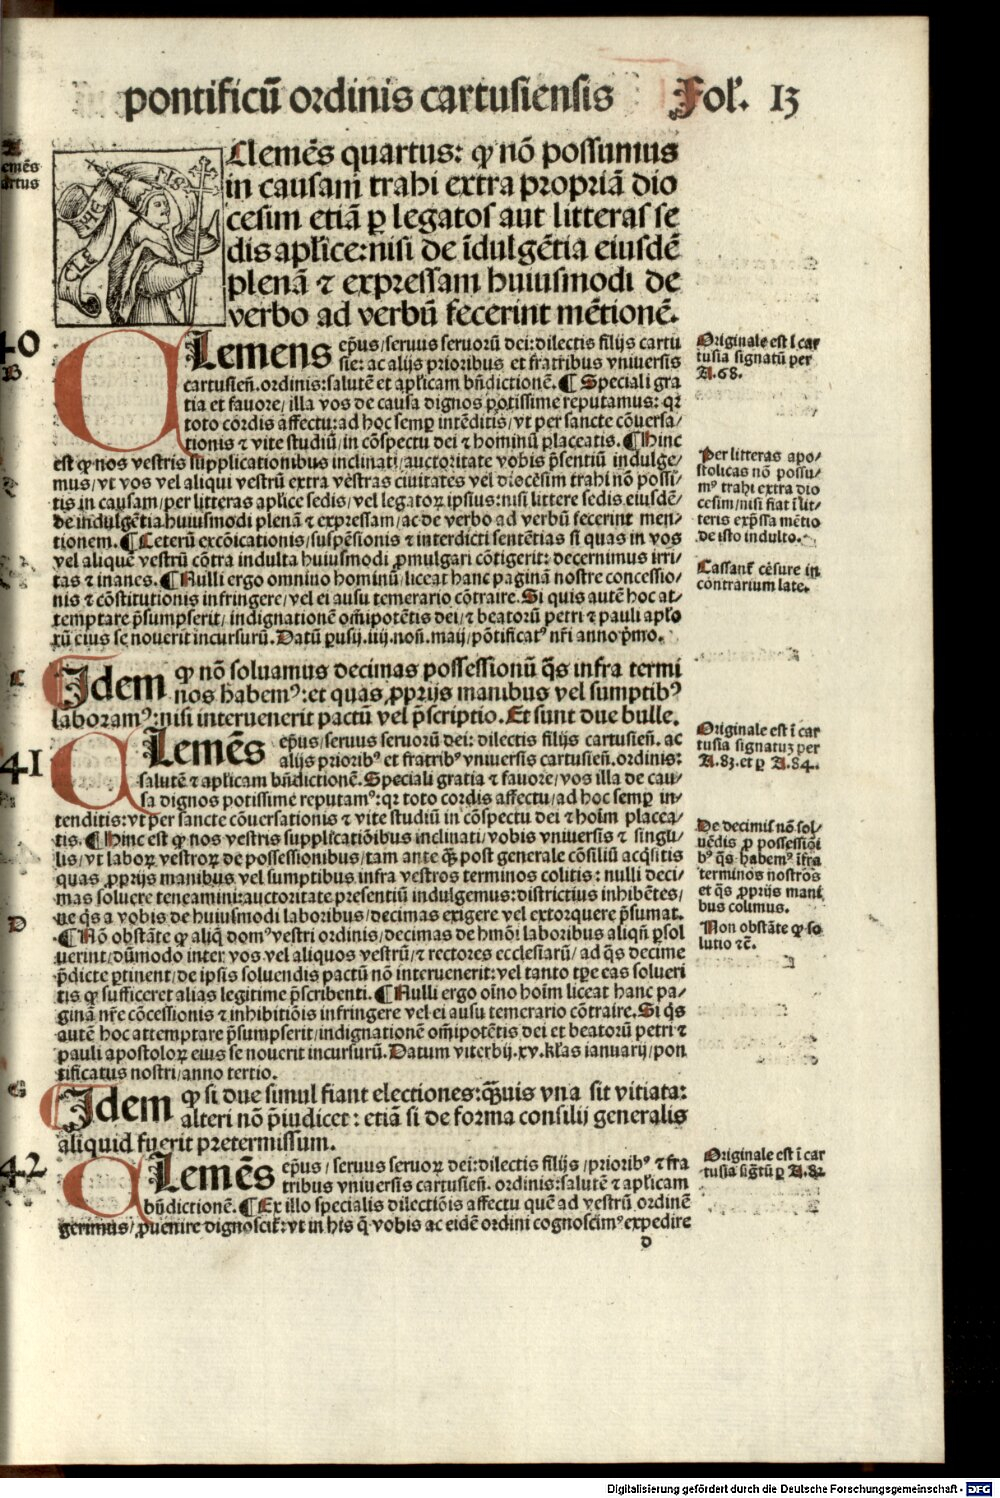 pontificū ordinis cartusiensis Fol'. 13
Clemēs quartus: ꝙ nō possumus
in causam trahi extra propriā dio
cesim etiā ꝑ legatos aut litteras se
dis apl'ice: nisi de īdulgētia eiusdē
plenā ⁊ expressam huiusmodi de
verbo ad verbū fecerint mētionē.
CLE ME NS
emēs
artus
40
B
CLemens ep̄us/seruus seruorū dei: dilectis filijs cartu
sie: ac alijs prioribus et fratribus vniuersis
cartusieñ. ordinis: salutē et apl'icam bn̄dictionē. ¶ Speciali gra
tia et fauore/illa vos de causa dignos potissime reputamus: qꝛ
toto cordis affectu: ad hoc semꝑ intēditis/vt per sancte cōuersa/
tionis ⁊ vite studiū/in cōspectu dei ⁊ hominū placeatis. ¶ Hinc
est ꝙ nos vestris supplicationibus inclinati/auctoritate vobis p̄sentiū indulge/
mus/vt vos vel aliqui vestrū extra vestras ciuitates vel diocesim trahi nō possi/
tis in causam/per litteras apl'ice sedis/vel legatoꝝ ipsius: nisi littere sedis eiusdē/
de indulgētia huiusmodi plenā ⁊ expressam/ac de verbo ad verbū fecerint men/
tionem. ¶ Ceterū excōicationis/suspēsionis ⁊ interdicti sentētias si quas in vos
vel aliquē vestrū cōtra indulta huiusmodi ꝓmulgari cōtigerit: decernimus irri/
tas ⁊ inanes. ¶ Nulli ergo omnino hominū/liceat hanc paginā nostre concessio/
nis ⁊ cōstitutionis infringere/vel ei ausu temerario cōtraire. Si quis autē hoc at/
temptare p̄sumpserit/indignationē om̄ipotētis dei/⁊ beatorū petri ⁊ pauli apl'o
rū eius se nouerit incursurū. Datū ꝑusij. iiij. noñ. maij/pōtificatꝰ nr̄i anno p̄mo.
Originale est ī car
tusia signatū per
A. 68.
Per litteras apo/
stolicas nō possu/
mꝰ trahi extra dio
cesim/nisi fiat ī lit/
teris exp̄ssa mētio
de isto indulto.
Cassant̄ cēsure in
contrarium late.
C
Idem ꝙ nō soluamus decimas possessionū q̄s infra termi
nos habemꝰ: et quas ꝓprijs manibus vel sumptibꝰ
laboramꝰ: nisi interuenerit pactū vel p̄scriptio. Et sunt due bulle.
41
CLemēs ep̄us/seruus seruorū dei: dilectis filijs cartusieñ. ac
alijs prioribꝰ et fratribꝰ vniuersis cartusieñ. ordinis:
salutē ⁊ apl'icam bn̄dictionē. Speciali gratia ⁊ fauore/vos illa de cau/
sa dignos potissime reputamꝰ: qꝛ toto cordis affectu/ad hoc semꝑ in/
tenditis: vt per sancte cōuersationis ⁊ vite studiū in cōspectu dei ⁊ hoim placea/
tis. ¶ Hinc est ꝙ nos vestris supplicatiōibus inclinati/vobis vniuersis ⁊ singu/
lis/vt laboꝝ vestroꝝ de possessionibus/tam ante q̄ꝫ post generale cōsiliū acq̄sitis
quas ꝓprijs manibus vel sumptibus infra vestros terminos colitis: nulli deci/
mas soluere teneamini: auctoritate presentiū indulgemus: districtius inhibētes/
ne q̄s a vobis de huiusmodi laboribus/decimas exigere vel extorquere p̄sumat.
¶ Nō obstāte ꝙ aliq̄ domꝰ vestri ordinis/decimas de hmōi laboribus aliqn̄ ꝑsol
uerint/dūmodo inter vos vel aliquos vestrū/⁊ rectores ecclesiarū/ad q̄s decime
p̄dicte ꝑtinent/de ipsis soluendis pactū nō interuenerit: vel tanto tp̄e eas solueri
tis ꝙ sufficeret alias legitime p̄scribenti. ¶ Nulli ergo oīno hoim liceat hanc pa/
ginā nr̄e cōcessionis ⁊ inhibitiōis infringere vel ei ausu temerario cōtraire. Si q̄s
autē hoc attemptare p̄sumpserit/indignationē om̄ipotētis dei et beatorū petri ⁊
pauli apostoloꝝ eius se nouerit incursurū. Datum viterbij. xv. kl'as ianuarij/pon
tificatus nostri/anno tertio.
D
Originale est ī car
tusia signatuꝫ per
A. 83. et ꝑ A. 84.
De decimis nō sol/
uēdis ꝓ possessiōi
bꝰ q̄s habemꝰ īfra
terminos nostros
et q̄s ꝓprijs mani
bus colimus.
Non obstāte ꝙ so
lutio ⁊c̄.
G
Idem ꝙ si due simul fiant electiones: q̄ꝫuis vna sit vitiata:
alteri nō p̄iudicet: etiā si de forma consilij generalis
aliquid fuerit pretermissum.
42
CLemēs ep̄us/seruus seruoꝝ dei: dilectis filijs/prioribꝰ ⁊ fra
tribus vniuersis cartusieñ. ordinis: salutē ⁊ apl'icam
bn̄dictionē. ¶ Ex illo specialis dilectiōis affectu quē ad vestrū ordinē
gerimus/ꝓuenire dignoscit̄: vt in his q̄ vobis ac eidē ordini cognoscimꝰ expedire
Originale est ī car
tusia sig̅tū ꝑ A. 82
d
Digitalisierung gefördert durch die Deutsche Forschungsgemeinschaft - DFG